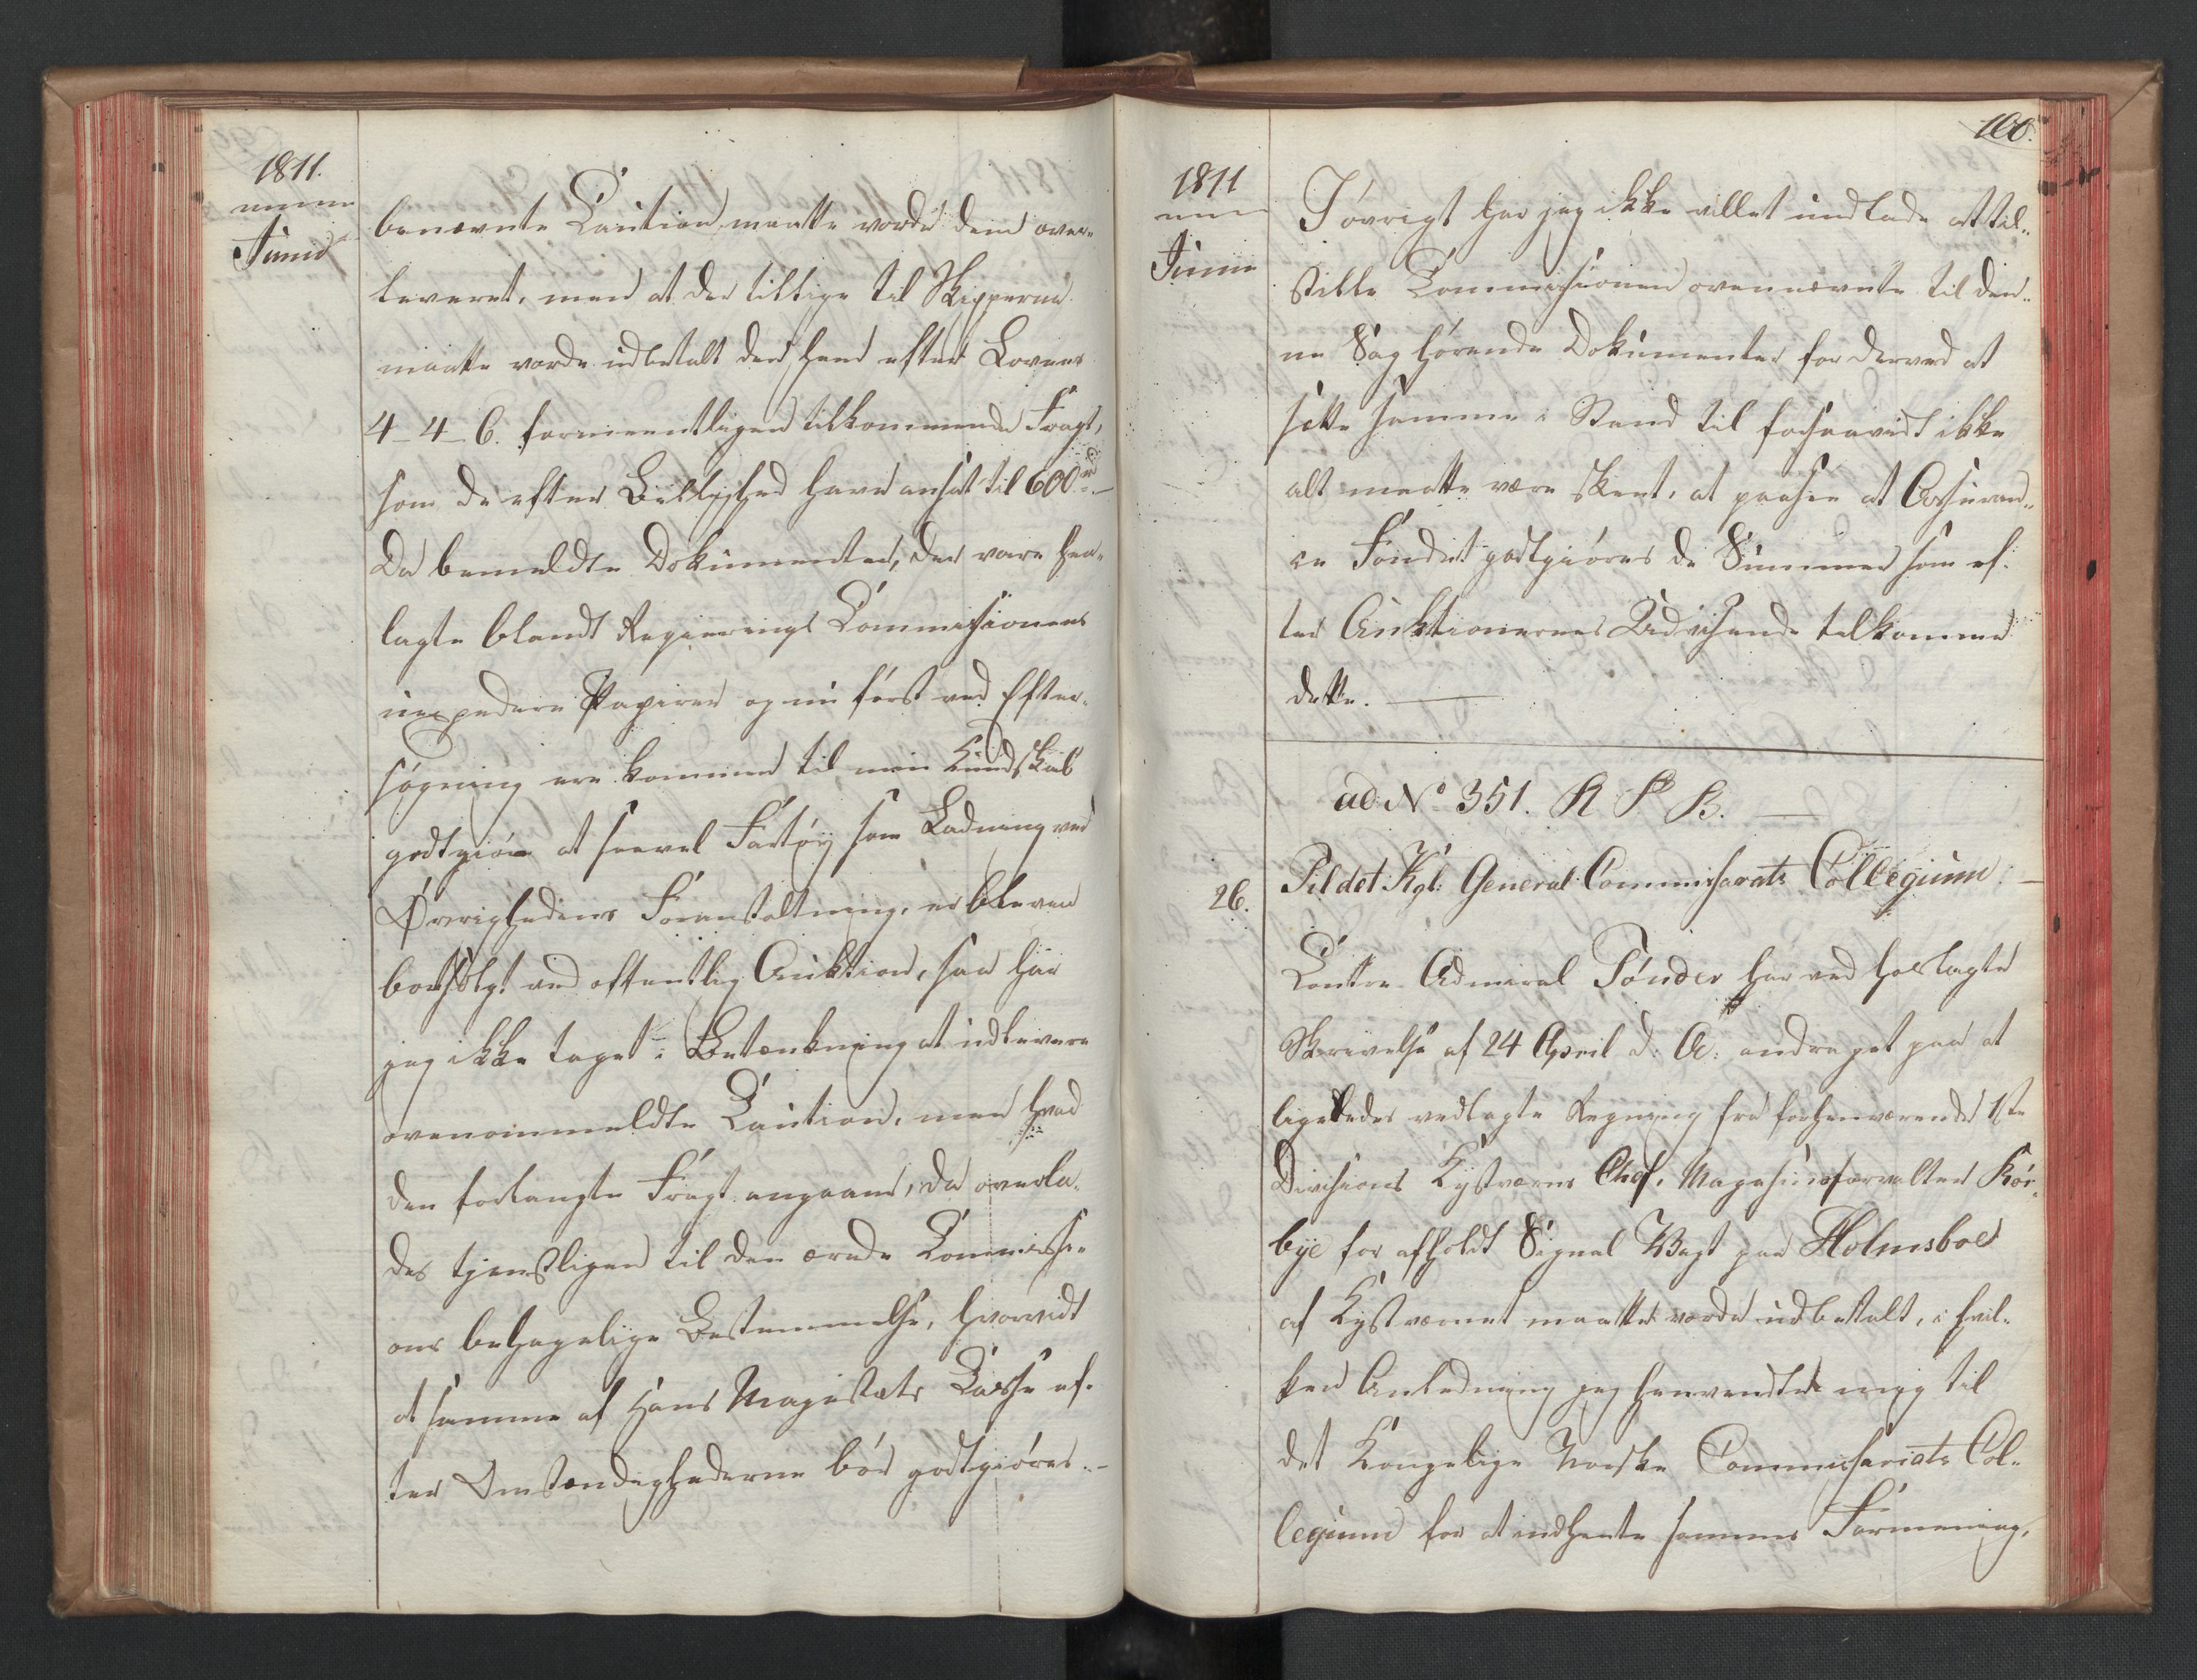 1811.
Junii
benævnte Caution maatte vorde dem over-
leveret, men at der tillige til Skipperne
maatte vorde udbetalt den ham efter Lovens
4-4-6. formeentligen tilkommende Fragt,
som de efter Billighed have ansat til 600 rd –
Da bemeldte Dokumenter, der vare hen-
lagte blandt Regierings Commissionens
uexpederede Papirer og nu først ved Efter-
søgning ere kommen til min Kundskab
godtgiør at saavel Fartøy som Ladning ved
Øvrighedens Foranstaltning, er bleven
bortsolgt ved offentlig Auktion, saa har
jeg ikke taget i Betænkning at udlevere
ovenommeldte Caution, men hvad
den forlangte Fragt angaaer, da overla-
des tjenstligen til den ærede Commissi-
ons behagelige Bestemmelse, hvorvidt
at samme af Hans Majestæts Casse ef-
ter Omstændighederne bør godtgiøres. –
100.
1811
Junii
I øvrigt har jeg ikke villet undlade at til-
stille Commissionen ovennævnte til den-
ne Sag hørende Dokumenter for derved at
sætte samme i Stand til forsaavidt ikke
alt maatte være skeet, at paasee at Assuran-
ce Fondet godtgiøres de Summer som ef-
ter Auktionernes Udvisende tilkomme
dette.
ad No 351. R P B.
Til det Kgl: General Commissariats Collegium. –
26.
Contre Admiral Tønder har ved hoslagte
Skrivelse af 24 April d: A: andraget paa at
ligeledes vedlagte Regning fra forhenværende 1ste
Divisions Kystværns Chef, Magasinforvalter Kør-
bye for afholdt Signal Vagt paa Holmsboe
af Kystværnet maatte vorde udbetalt, i hvil-
ken Anledning jeg henvendte mig til
det Kongelige Norske Commissariats Col-
legium for at indhente sammes Formening,